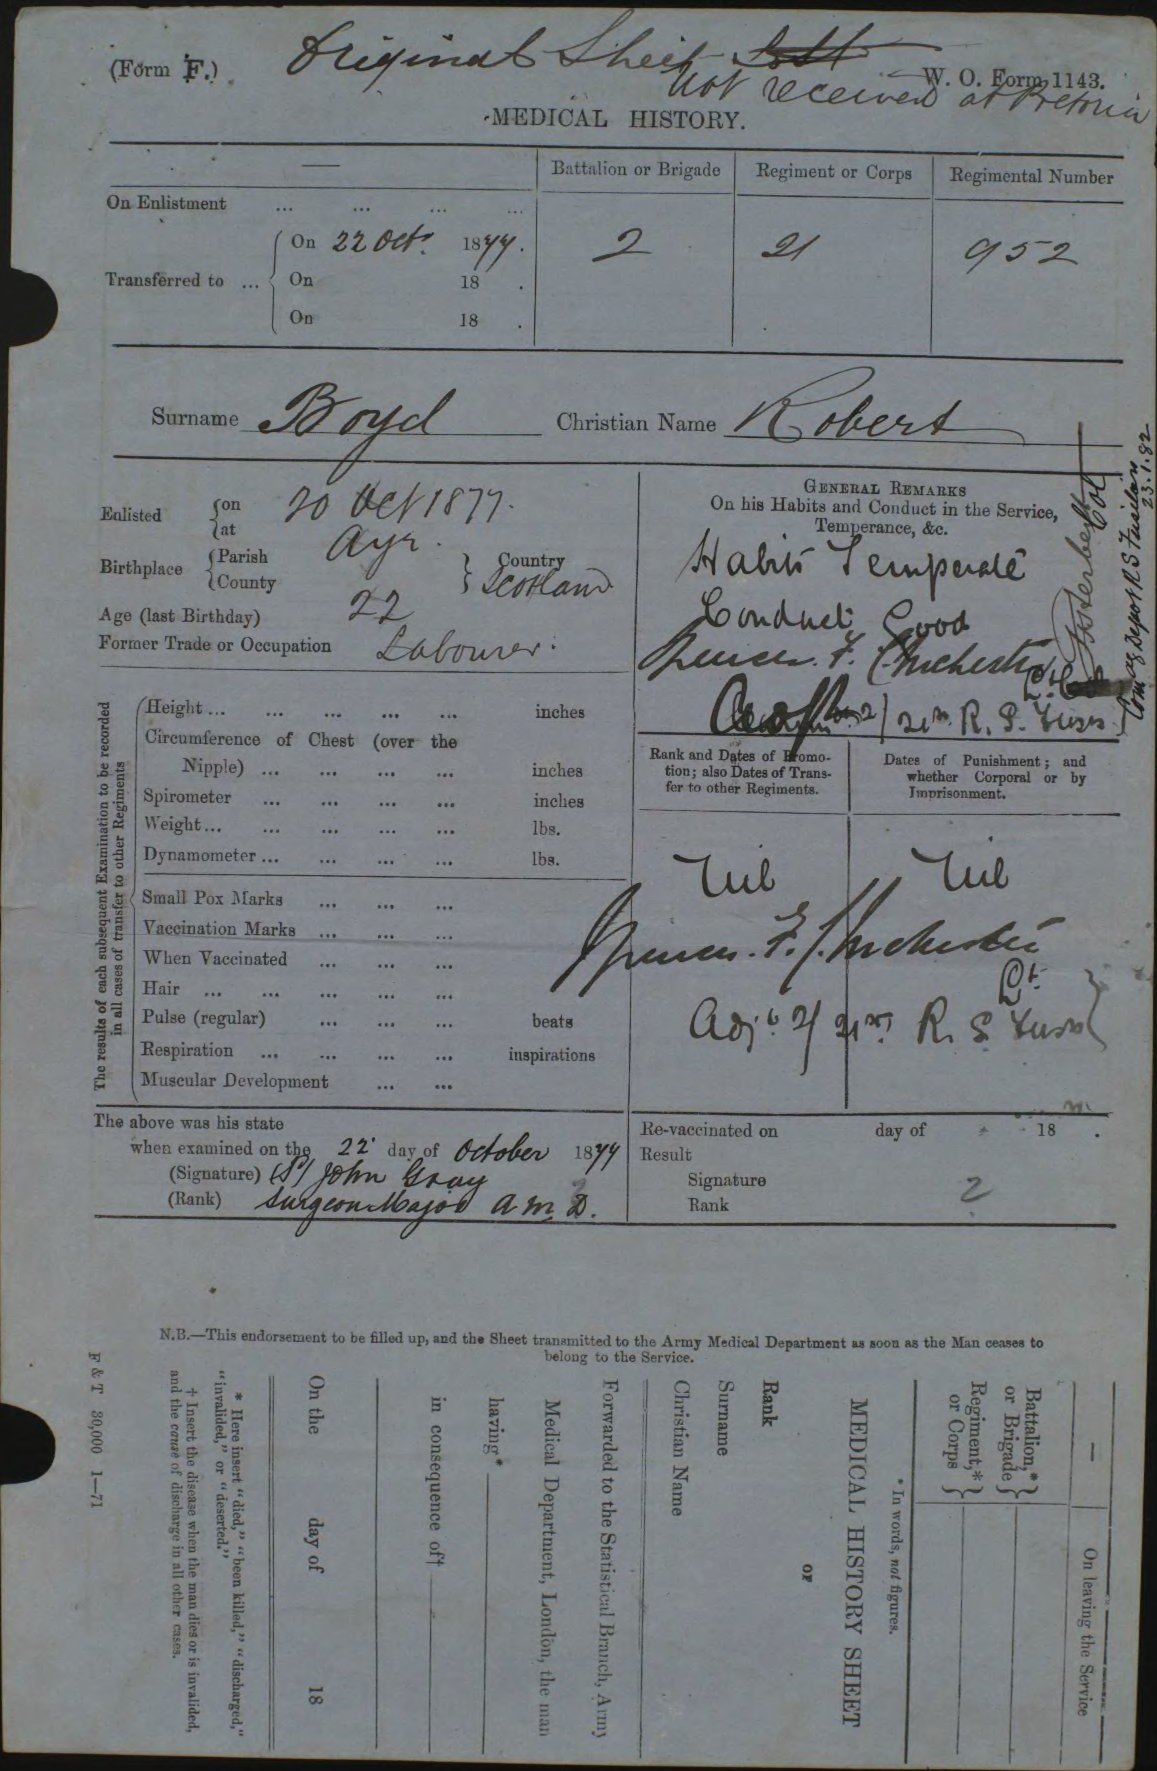 (Form F.)
Original Sheet
W. O. Form 1143.
Not received at Pretoria
MEDICAL HISTORY.
Battalion or Brigade
Regiment or Corps
Regimental Number
On Enlistment ... ... ... ...
Transferred to ...
On 22 Oct. 1877. 2 21 952
On 18 .
On 18 .
Surname Boyd Christian Name Robert
Enlisted { on 20 Oct 1877.
at Ayr.
Birthplace { Parish
County } Country Scotland
Age (last Birthday) 22
Former Trade or Occupation Labourer.
GENERAL REMARKS
On his Habits and Conduct in the Service,
Temperance, &c.
Habits Temperate
Conduct Good
Spencer. F. Chichester
Lt.
2/21st R. S. Fusrs
Col
Comg Depot R S Fusiliers
23.1.82
The results of each subsequent Examination to be recorded
in all cases of transfer to other Regiments
Height ... ... ... ... ... inches
Circumference of Chest (over the
Nipple) ... ... ... ... inches
Spirometer ... ... ... ... inches
Weight ... ... ... ... ... lbs.
Dynamometer ... ... ... ... lbs.
Small Pox Marks ... ... ...
Vaccination Marks ... ... ...
When Vaccinated ... ... ...
Hair ... ... ... ... ...
Pulse (regular) ... ... ... beats
Respiration ... ... ... ... inspirations
Muscular Development ... ...
Rank and Dates of Promo-
tion; also Dates of Trans-
fer to other Regiments.
Dates of Punishment; and
whether Corporal or by
Imprisonment.
Nil Nil
Spencer. F. Chichester
Lt.
Adjt. 2/21st. R. S. Fusrs
The above was his state
when examined on the 22 day of October 1877
(Signature) (S) John Gray
(Rank) Surgeon Major A. M. D.
Re-vaccinated on day of 18 .
Result
Signature
Rank
2
N.B.—This endorsement to be filled up, and the Sheet transmitted to the Army Medical Department as soon as the Man ceases to
belong to the Service.
On leaving the Service
Battalion,*
or Brigade
Regiment,*
or Corps
* In words, not figures.
MEDICAL HISTORY SHEET
OF
Rank
Surname
Christian Name
Forwarded to the Statistical Branch, Army
Medical Department, London, the man
having*
in consequence of†
On the day of 18
* Here insert "died," "been killed," "discharged,"
"invalided," or "deserted."
† Insert the disease when the man dies or is invalided,
and the cause of discharge in all other cases.
F & T 30,000 1—71